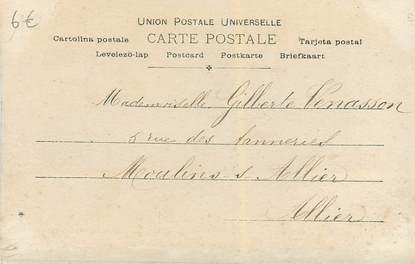 6€
UNION POSTALE UNIVERSELLE
Cartolina postale CARTE POSTALE Tarjeta postal
Levelező-lap Postcard Postkarte Briefkaart
Mademoiselle Gilberte Venasson
rue des tanneries
Moulins-s Allier
Allier